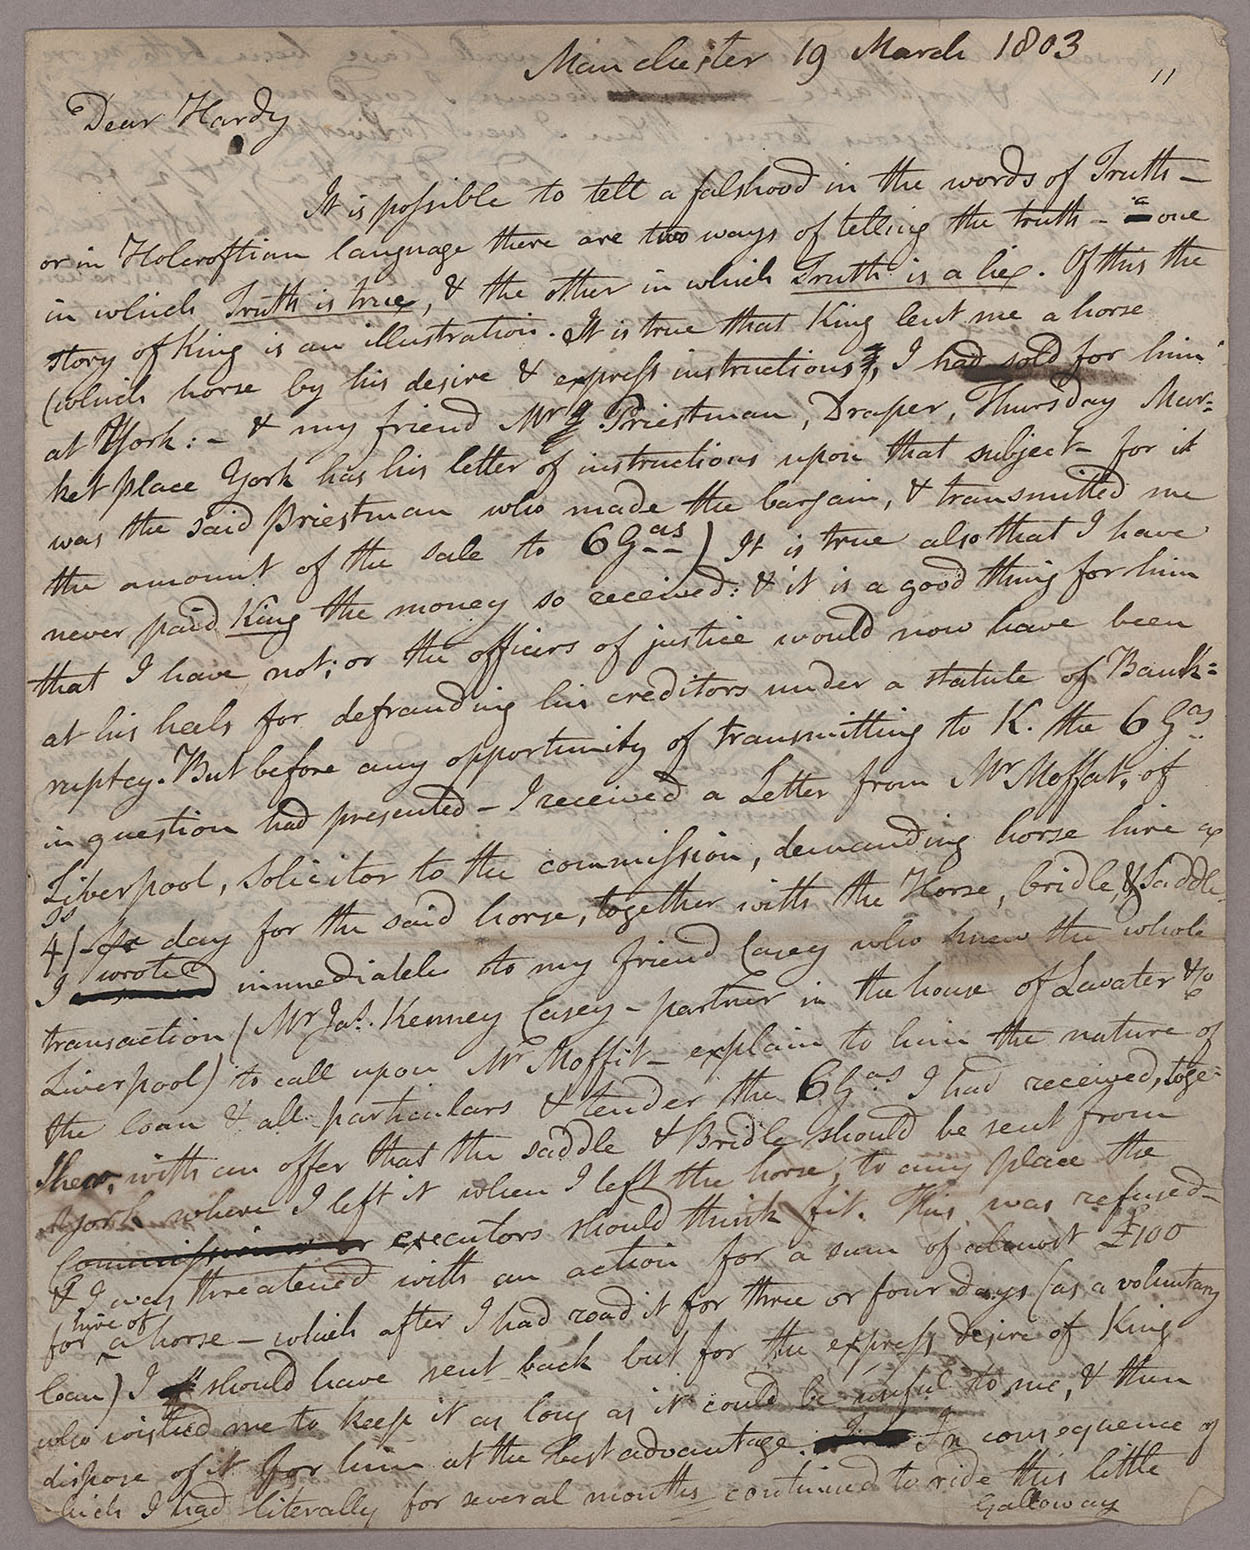 Manchester 19 March 1803
11
Dear Hardy
It is possible to tell a falshood in the words of Truth –
or in Holcroftian language there are two ways of telling the truth – a one
in which Truth is true, & the other in which Truth is a lie. Of this the
story of King is an illustration. It is true that King lent me a horse
(which horse by his desire & express instructions, I had sold for him
at York: – & my friend Mr Priestman, Draper, Thursday Mar=
ket place York has his letter of instructions upon that subject – for it
was the said Priestman who made the bargain, & transmitted me
the amount of the sale to 6 Gas) It is true also that I have
never paid King the money so received: & it is a good thing for him
that I have not; or the officers of justice would now have been
at his heels for defrauding his creditors under a statute of Bank=
ruptcy. But before any opportunity of transmitting to K. the 6 Gas
in question had presented – I received a Letter from Mr Moffat, of
Liverpool, Solicitor to the commission, demanding horse hire
4/– day for the said horse, together with the Horse, bridle, & Saddle
I wrote immediately to my friend Casey who knew the whole
transaction (Mr Jas. Kenney Casey – partner in the house of Lavater & Co
Liverpool) to call upon Mr Moffit – explain to him the nature of
the loan & all particulars & tender the 6 Gas I had received, toge=
ther, with an offer that the saddle & Bridle should be sent from
York where I left it when I left the horse, to any place the
Commissioners or executors should think fit. This was refused –
& I was threatened with an action for a sum of almost £100
for hire of a horse – which after I had road it for three or four days (as a voluntary
loan) I should have sent back but for the express desire of King
who wished me to keep it as long as it could be useful to me, & then
dispose of it for him at the best advantage. In consequence of
which I had literally for several months continued to ride this little
Galloway